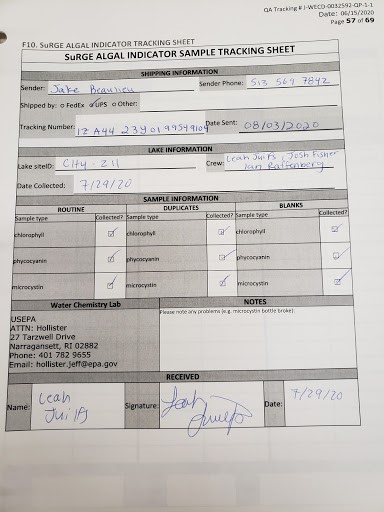 QA Tracking # J-WECD-0032592-QP-1-1
Date: 06/15/2020
Page 57 of 69
F10. SuRGE ALGAL INDICATOR TRACKING SHEET
SuRGE ALGAL INDICATOR SAMPLE TRACKING SHEET
SHIPPING INFORMATION
Sender: Jake Beaulieu Sender Phone: 513 569 7842
Shipped by: o FedEx o UPS o Other:
Tracking Number: Date Sent: 08/03/2020
LAKE INFORMATION
Lake siteID: CH4-211 Crew: Leah Juilfs, Josh Fisher
Date Collected: 7/29/20
SAMPLE INFORMATION
ROUTINE DUPLICATES BLANKS
Sample type Collected? Sample type Collected? Sample type Collected?
chlorophyll chlorophyll chlorophyll
phycocyanin phycocyanin phycocyanin
microcystin microcystin microcystin
Water Chemistry Lab NOTES
USEPA Please note any problems (e.g. microcystin bottle broke):
ATTN: Hollister
27 Tarzwell Drive
Narragansett, RI 02882
Phone: 401 782 9655
Email: hollister.jeff@epa.gov
RECEIVED
Name: Leah Juilfs Signature: Leah Juilfs Date: 7/29/20